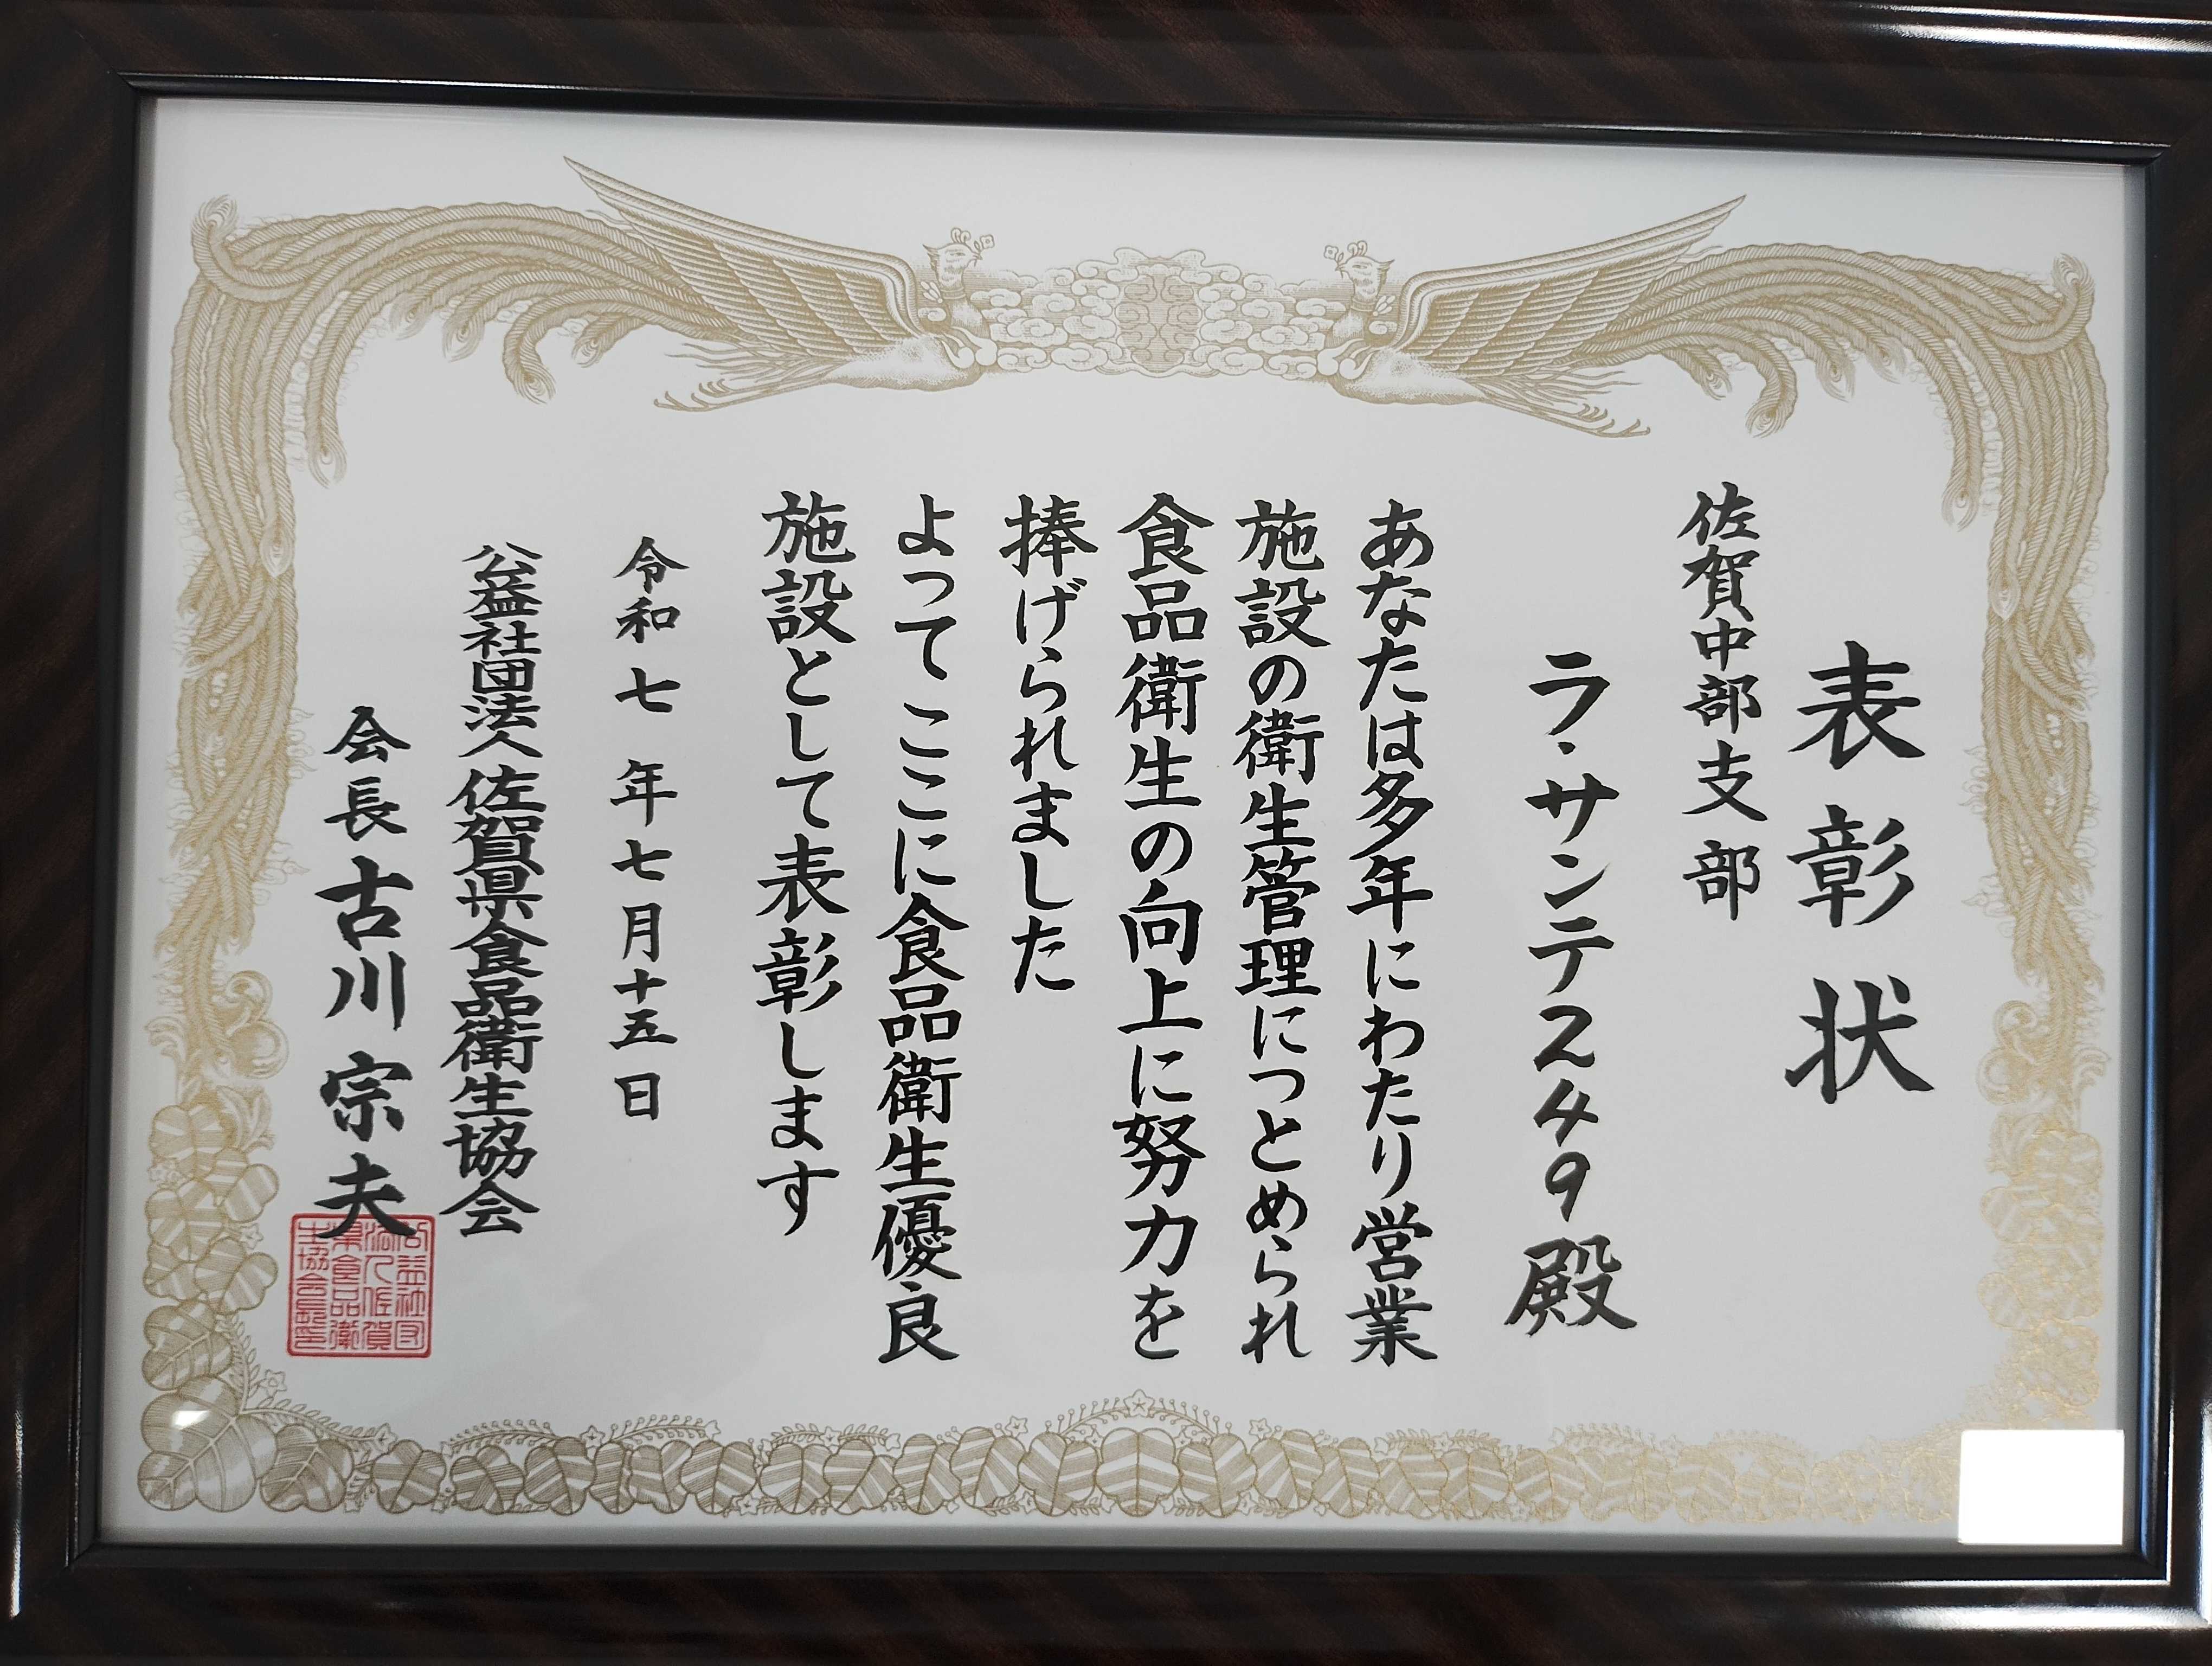 表彰状
佐賀中部支部
ラ・サンテ249殿
あなたは多年にわたり営業
施設の衛生管理につとめられ
食品衛生の向上に努力を
捧げられました
よってここに食品衛生優良
施設として表彰します
令和七年七月十五日
公益社団法人佐賀県食品衛生協会
会長古川宗夫
公益社団
法人佐賀
県食品衛
生協会長印